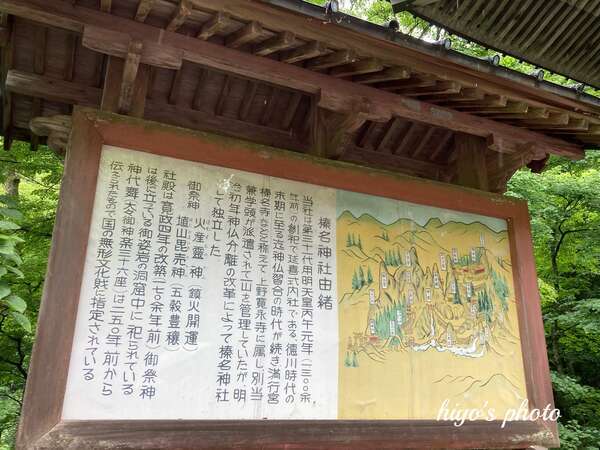 榛名神社由緒
当社は第三十代用明天皇丙午元年(一三〇〇余
年前)の創祀で延喜式内社である。徳川時代の
末期に至る迄神仏習合の時代が続き満行堂
榛名寺などと称えて上野寛永寺に属し別当
兼学頭が派遣されて一山を管理していたが、明
治初年神仏分離の改革によって榛名神社
として独立した
御祭神 火産霊神(鎮火開運)
埴山毘売神(五穀豊穣)
社殿は寛政四年の改築(一七〇余年前)御祭神
は後に立っている御姿岩の洞窟中に祀られている
神代舞(太々御神楽三十六座)は二五〇年前から
伝えられたもので国の無形文化戝に指定されている
hiyo's photo